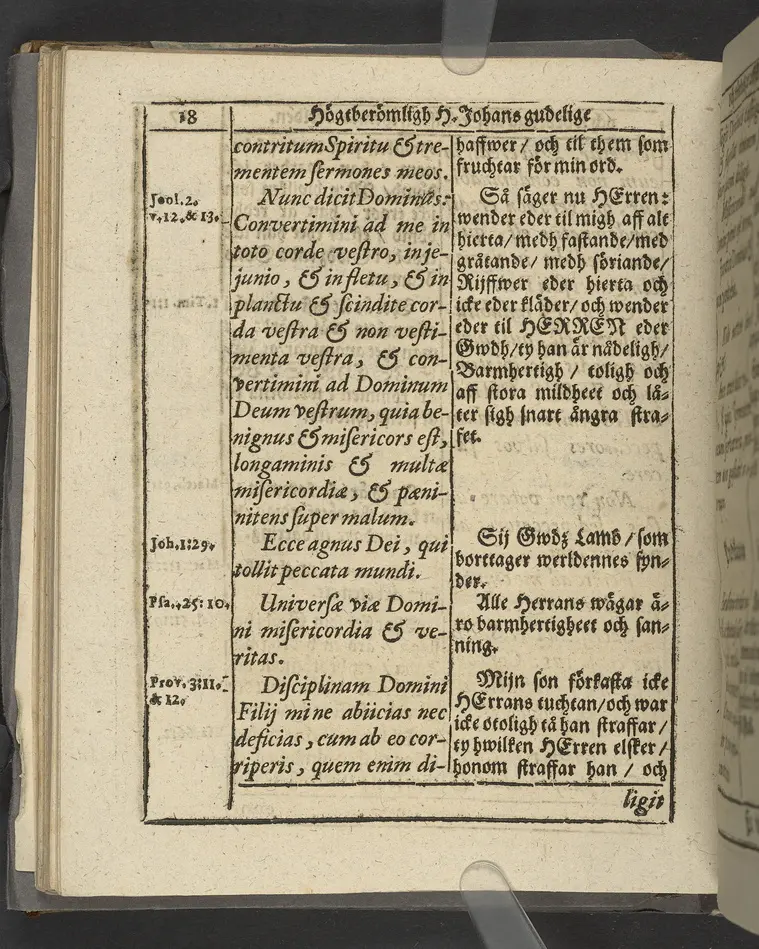 18
Högtberömligh H. Johans gudelige
contritum Spiritu & tre-
mentem sermones meos.
Jool. 2.
v. 12. & 13.
Nunc dicit Dominus:
Convertimini ad me in
toto corde vestro, in je-
junio, & in fletu, & in
planctu & scindite cor-
da vestra & non vesti-
menta vestra, & con-
vertimini ad Dominum
Deum vestrum, quia be-
nignus & misericors est,
longaminis & multæ
misericordiæ, & pæni-
nitens super malum.
Joh. 1:29.
Ecce agnus Dei, qui
tollit peccata mundi.
Psa. 25: 10.
Universæ viæ Domi-
ni misericordia & ve-
ritas.
Prov. 3:11.
& 12.
Disciplinam Domini
Filij mi ne abiicias nec
deficias, cum ab eo cor-
riperis, quem enim di-
haffwer / och til them som
fruchtar för min ord.
Så säger nu HErren:
wender eder til migh aff alt
hierta / medh fastande / med
gråtande / medh söriande /
Rijffwer eder hierta och
icke eder kläder / och wender
eder til HERREN eder
Gwdh / ty han är nådeligh /
Barmhertigh / toligh och
aff stora mildheet och lå-
ter sigh snart ångra stra-
fet.
Sij Gwdz Lamb / som
borttager werldennes syn-
der.
Alle Herrans wägar ä-
ro barmhertigheet och san-
ning.
Mijn son förkasta icke
HErrans tuchtan / och war
icke otoligh tå han straffar /
ty hwilken HErren elsker /
honom straffar han / och
ligit